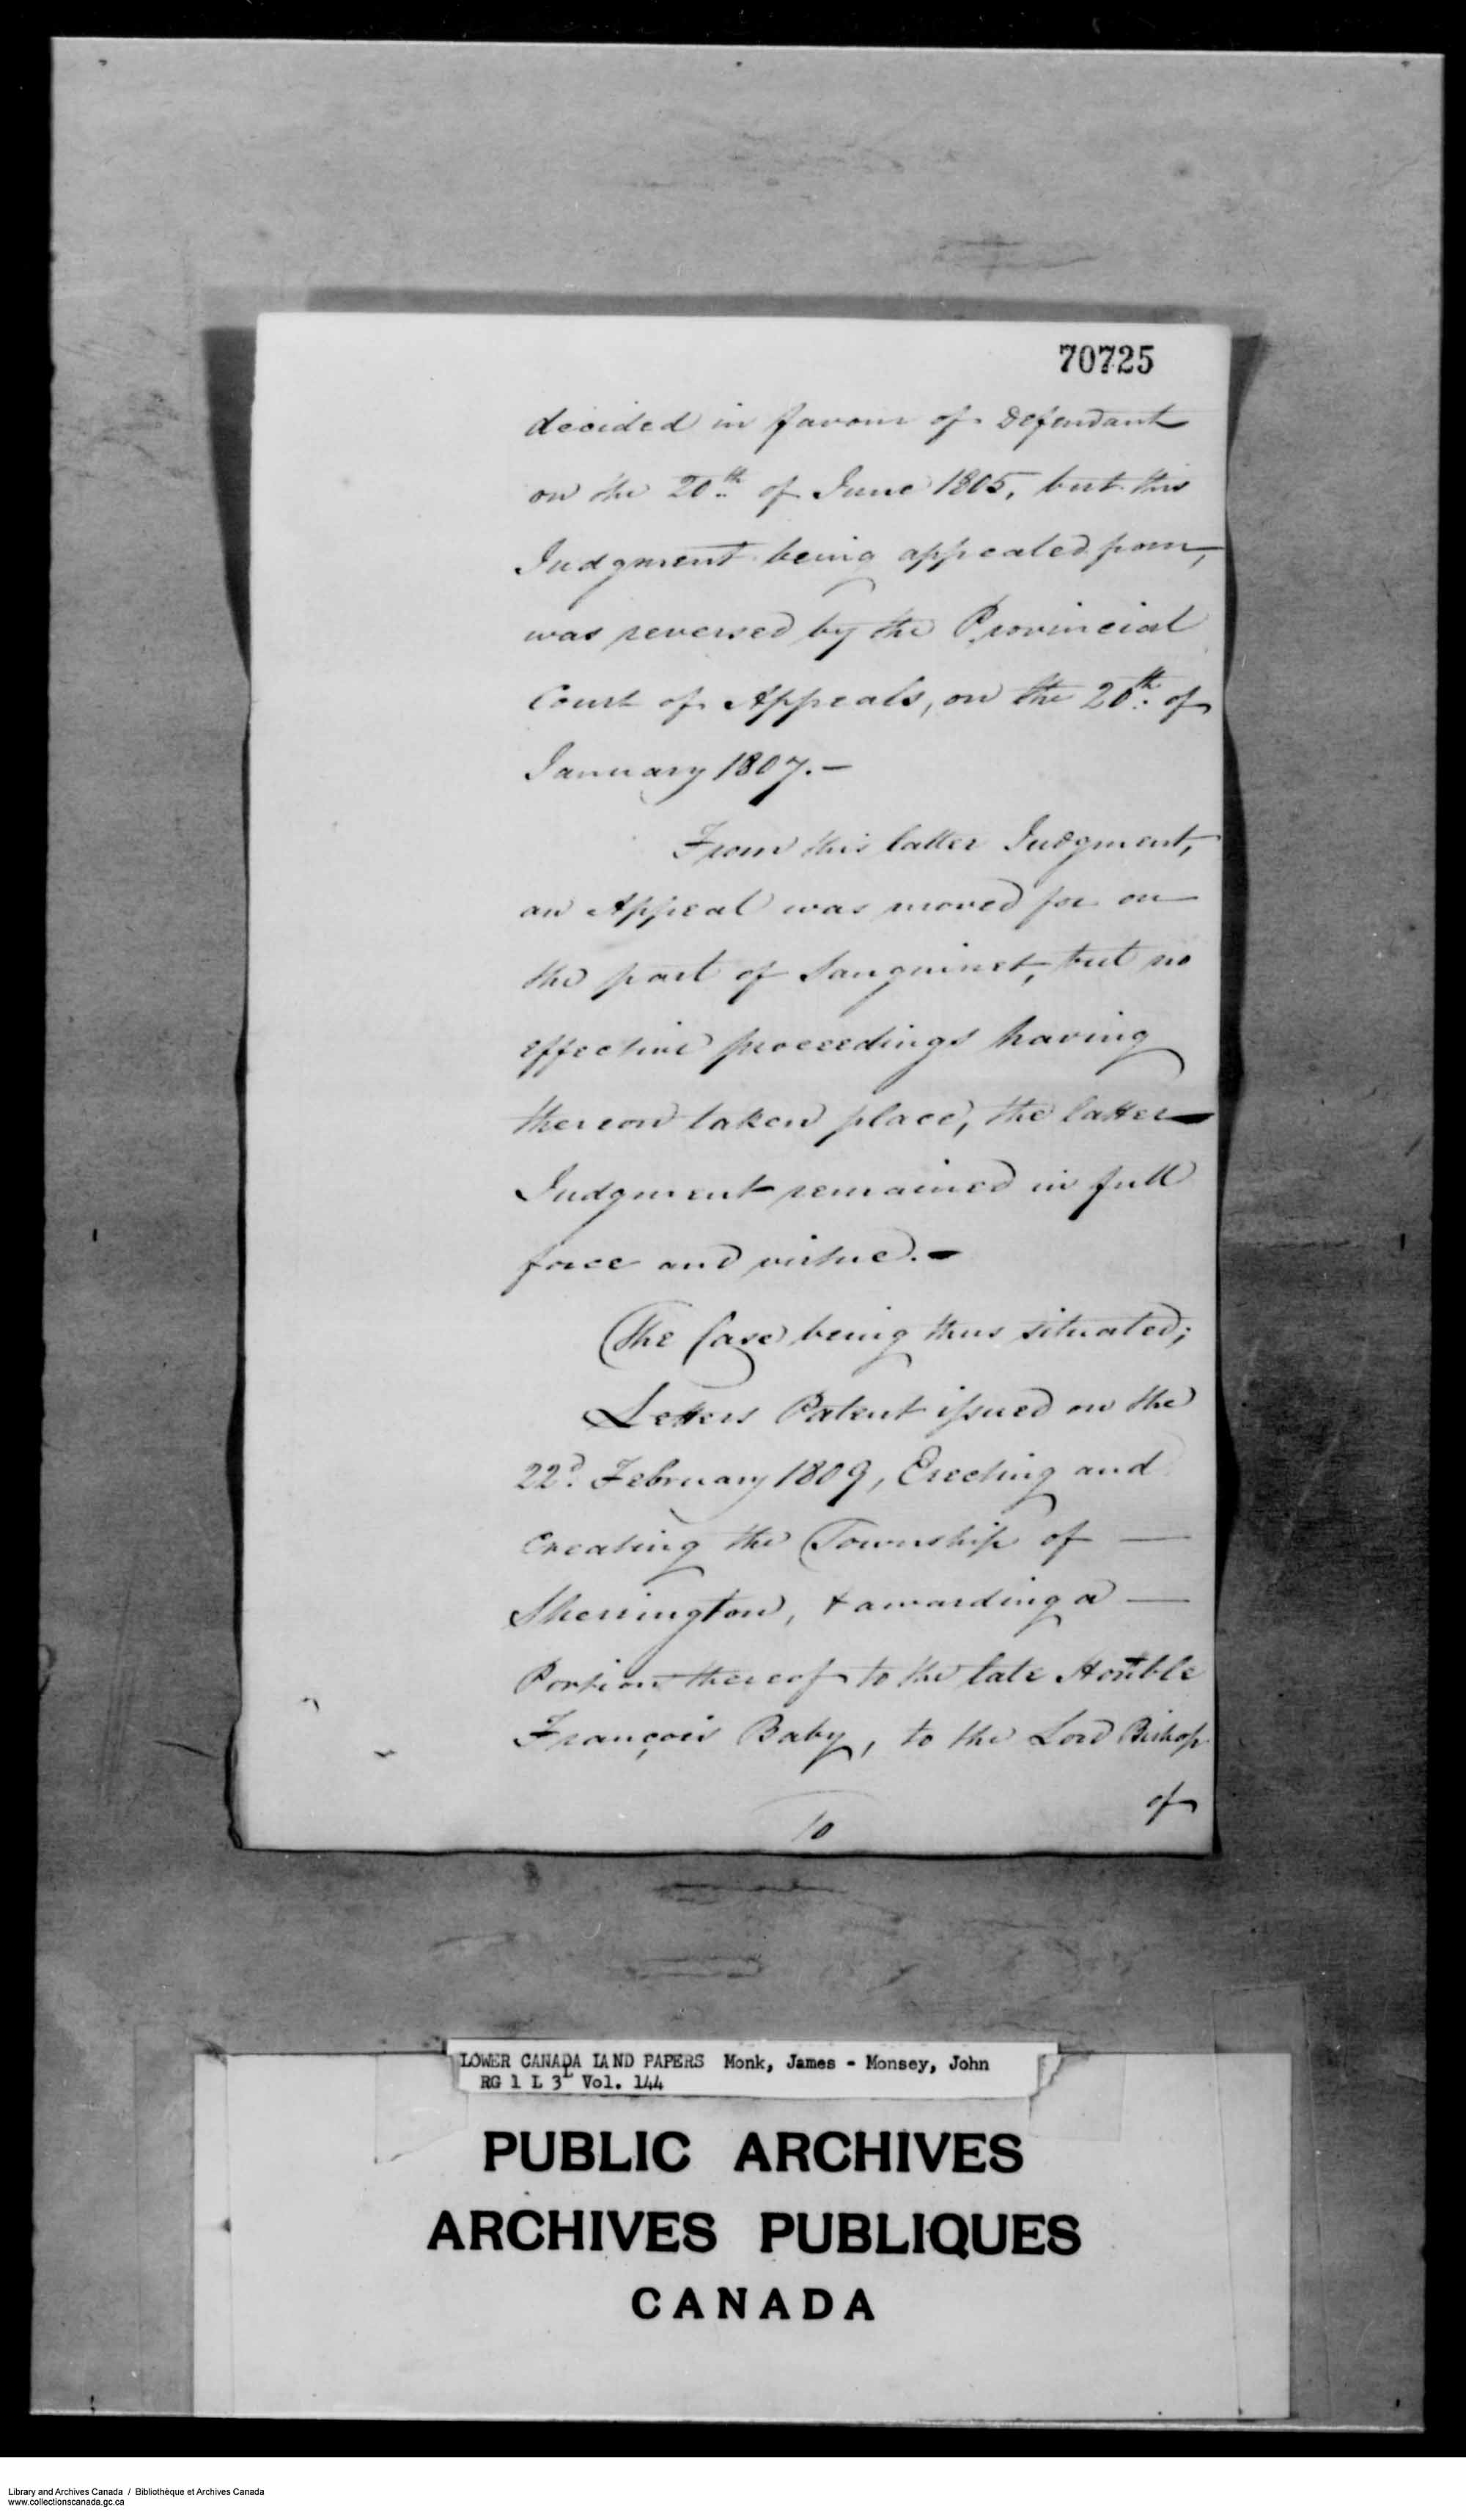 70725
decided in favour of Defendant
on the 20th of June 1805, but this
Judgment being appealed from,
was reversed by the Provincial
Court of Appeals, on the 20th. of
January 1807.—
From this latter Judgment,
an Appeal was moved for on
the part of Sanguinet, but no
effective proceedings having
thereon taken place, the latter—
Judgment remained in full
force and virtue.—
The Case being thus situated;
Letters Patent issued on the
22d. February 1809, Erecting and
Creating the Township of —
Sherrington, & awarding a —
Portion thereof to the late Honble
François Baby, to the Lord Bishop
of
10
LOWER CANADA LAND PAPERS Monk, James - Monsey, John
RG 1 L 3L Vol. 144
PUBLIC ARCHIVES
ARCHIVES PUBLIQUES
CANADA
Library and Archives Canada / Bibliothèque et Archives Canada
www.collectionscanada.gc.ca